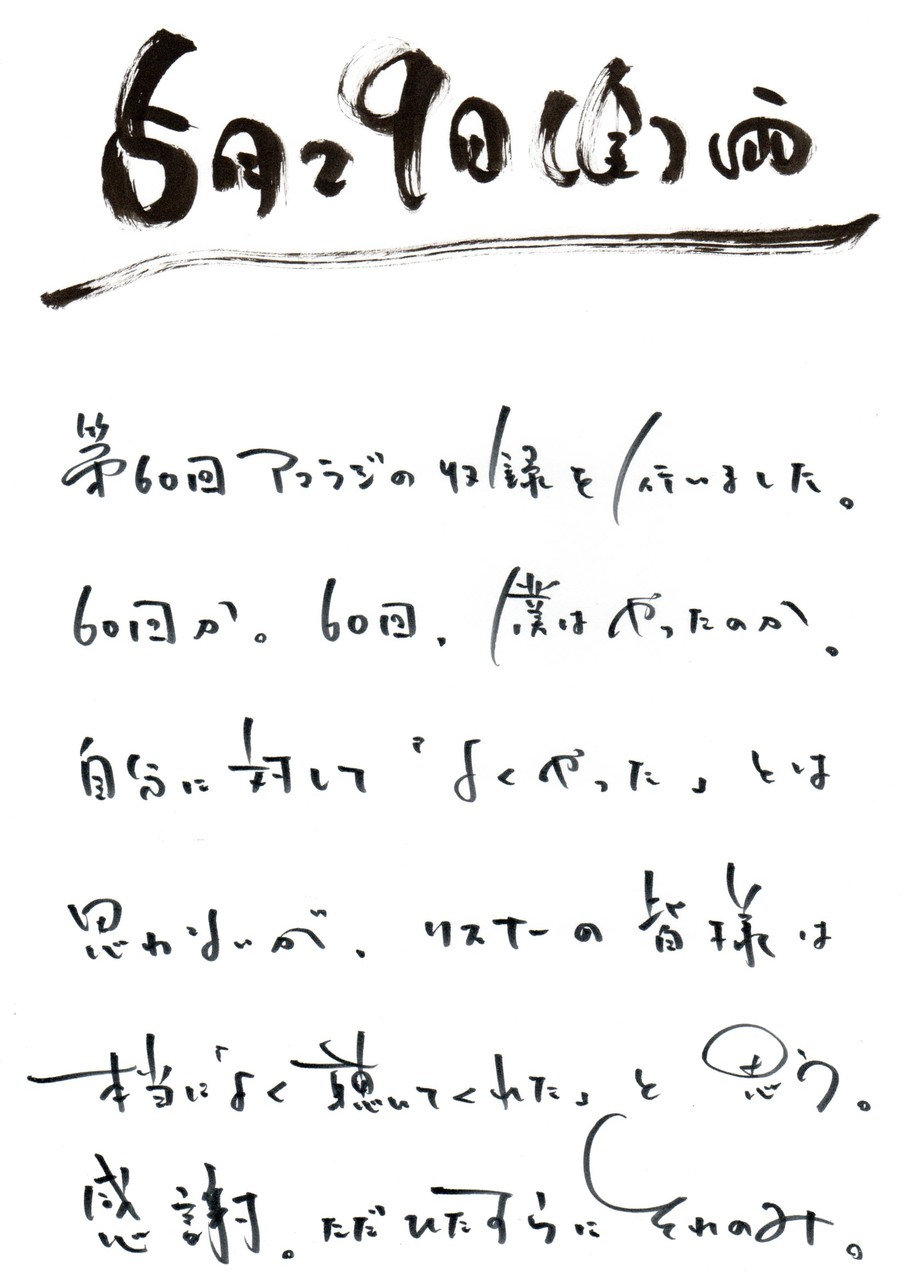 6月29日(金)雨
第60回アコラジの収録を行いました。
60回か。60回、僕はやったのか。
自分に対して『よくやった』とは
思わないが、リスナーの皆様は
本当に「よく聴いてくれた」と思う。
感謝。ただひたすらにそれのみ。